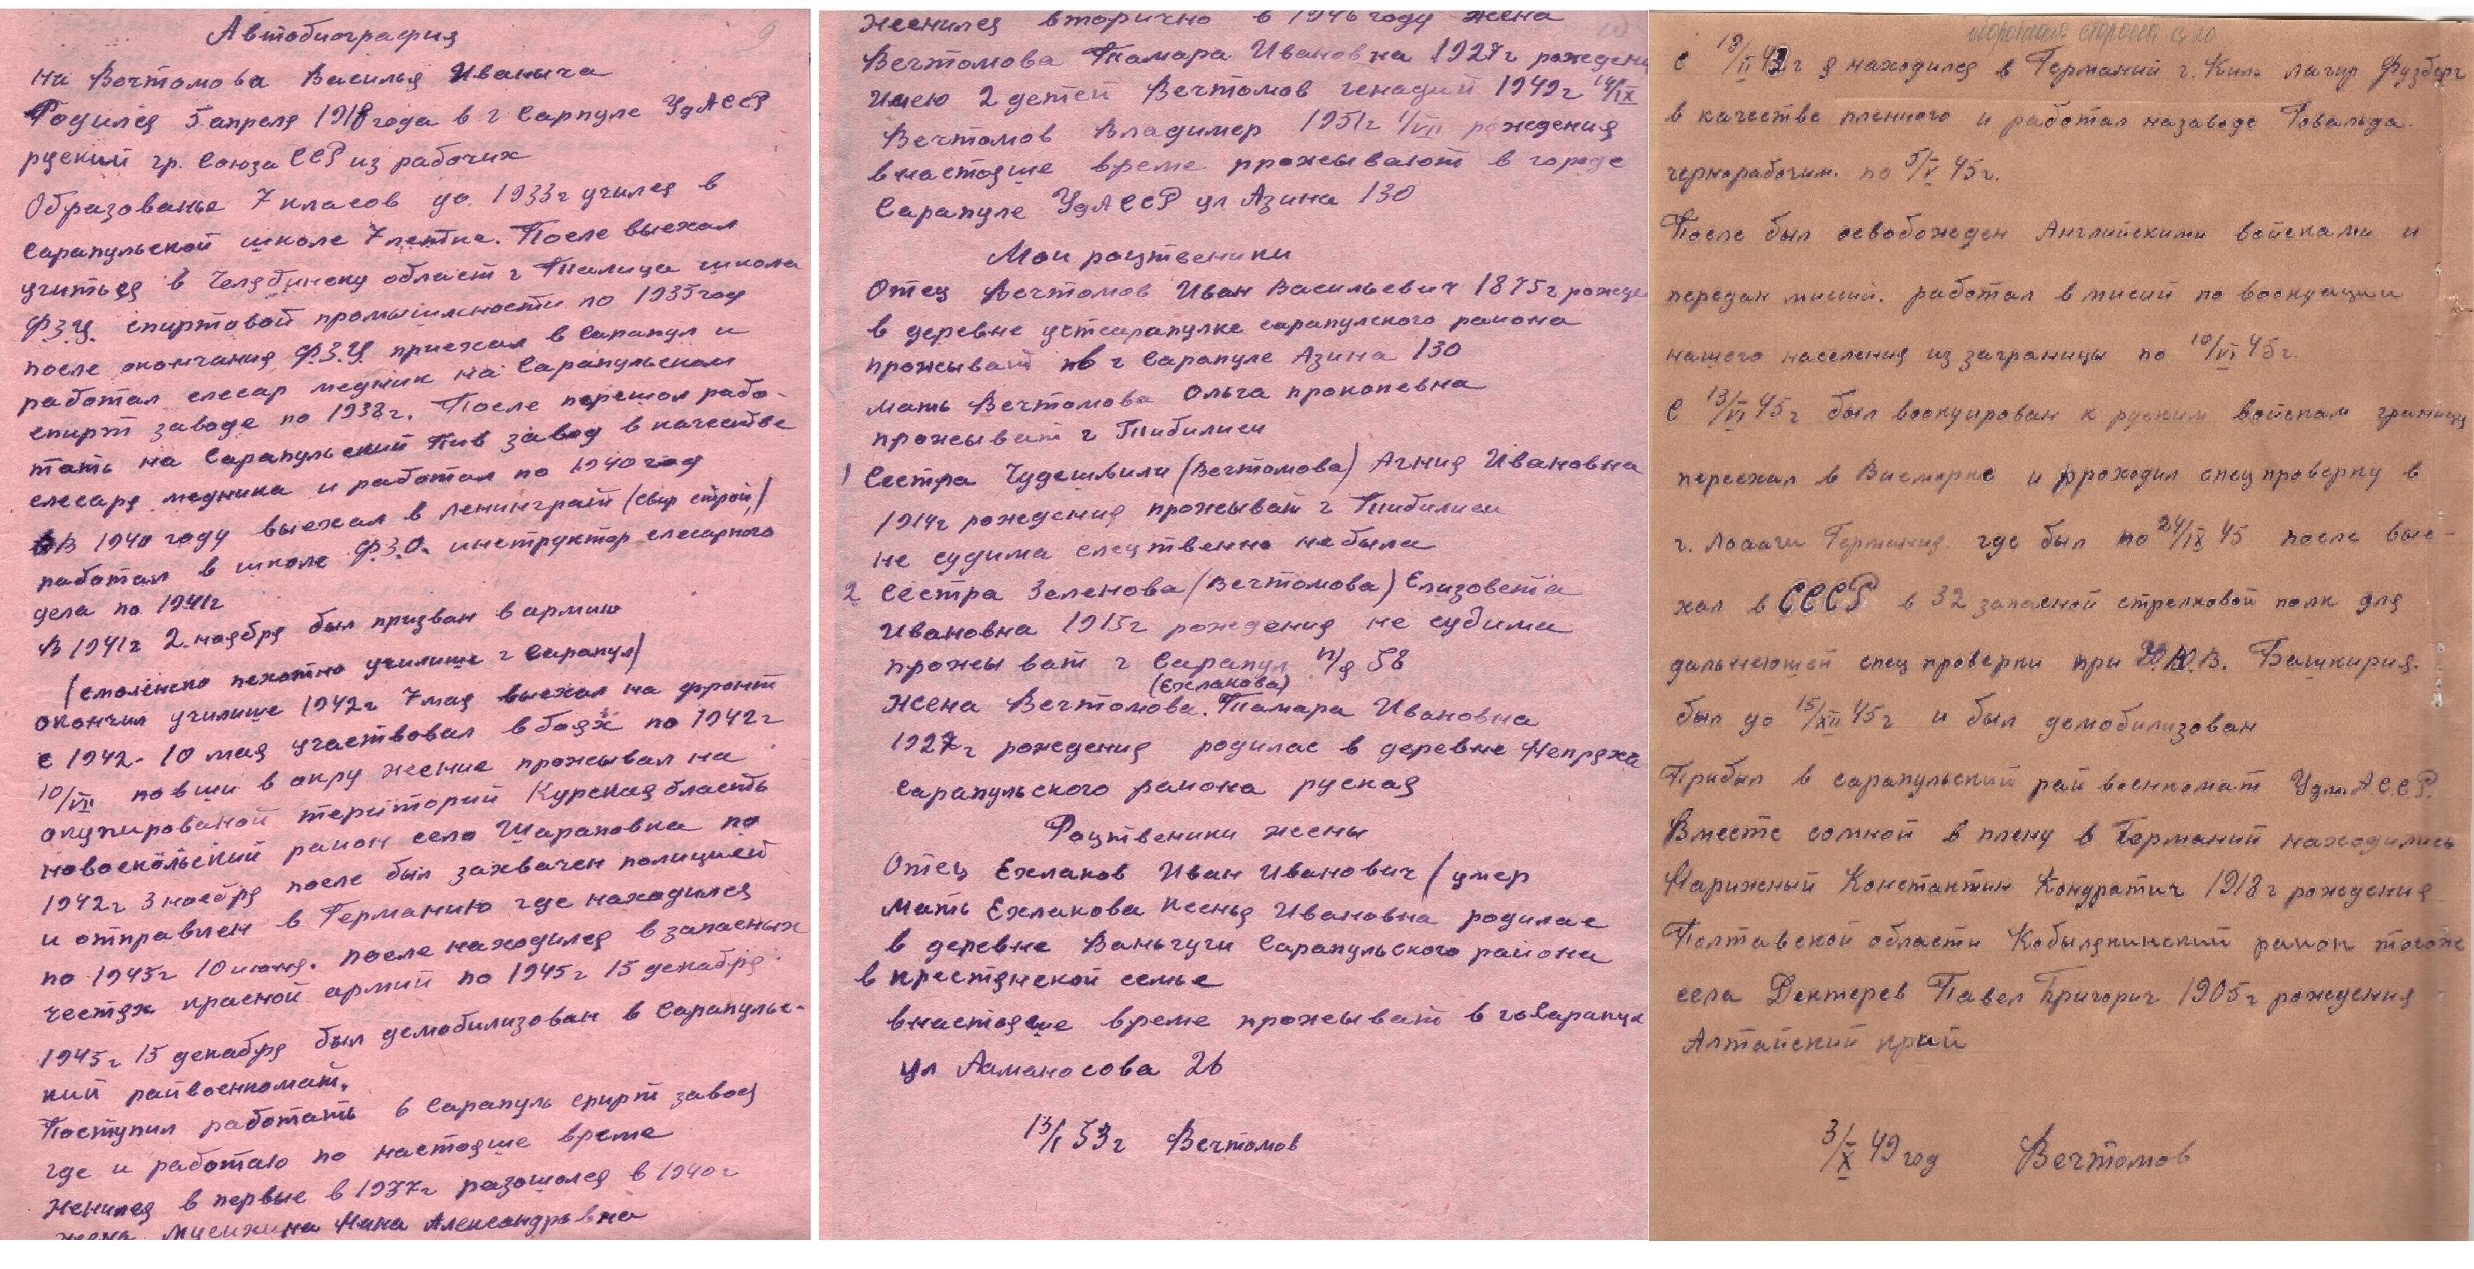 Автобиография
9
на Вечтомова Василья Иваныча
Родился 5 апреля 1918 года в г Сарпуле УдАССР
руский гр. Союза ССР из рабочих
Образованье 7 класов до 1933г учился в
Сарапульской школе 7 летке. После выехал
учиться в Челябинску област г Талица школа
Ф.З.У. спиртовой промышлености по 1935 год
после окончания Ф.З.У приехал в Сарапул и
работал слесар медник на Сарапульском
спирт заводе по 1938г. После перешол рабо-
тать на Сарапульский Пив завод в качестве
слесаря медника и работал по 1940 год
В 1940 году выехал в Ленинграт (Свир строй)
работал в школе Ф.З.О. инструктор слесарного
дела по 1941г
В 1941г 2 ноября был призван в армию
(Смоленско пехотно училише г Сарапул)
окончил училише 1942г 7 мая выехал на фронт
с 1942 - 10 мая участвовал в боях по 1942г
10/VII повши в окружение прожывал на
окупированой територий Курская бласть
новоскольский район село Шараповка по
1942г 3 ноебря после был захвачен полицией
и отправлен в Германию где находился
по 1945г 10 июня. после находился в запасных
честях красной армий по 1945г 15 декабря.
1945г 15 декабря был демобилизован в Сарапульс-
кий райвоенкомат.
Поступил работать в Сарапуль спирт завод
где и работаю по настояше време
Женился в первые в 1937г разошолся в 1940г
жена Мусихина Нина Александровна
женился вторично в 1946 году жена
Вечтомова Тамара Ивановна 1927г рождени
Имею 2 детей Вечтомов генадий 1949г 14/IX
Вечтомов Владимер 1951г 1/VII рождения
внастояше време прожывают в городе
Сарапуле УдАССР ул Азина 130
Мои роцтвеники
Отец Вечтомов Иван Васильевич 1875г рожде
в деревне устсарапулке сарапулского района
прожыват в г Сарапуле Азина 130
мать Вечтомова Ольга прокопевна
прожыват г Тибилиси
1 Сестра Чудешвили (Вечтомова) Агния Ивановна
1914г рождения прожыват г Тибилиси
не судима следственно небыла
2 Сестра Зеленова (Вечтомова) Елизовета
Ивановна 1915г рождения не судима
прожыват г Сарапул п/я 58
(Ехлакова)
Жена Вечтомова. Тамара Ивановна
1927г рождения родилас в деревне Непряха
Сарапульского района руская
Роцтвеники жены
Отец Ехлаков Иван Иванович / умер
мать Ехлакова Ксенья Ивановна родилас
в деревне Ваньчуги Сарапульского района
в крестянской семье
внастояше време прожыват в гоСарапул
ул Ломаносова 26
13/I 53г Вечтомов
оборотная сторона
С 18/II 43г я находился в Германий г. Киль лагир Фузберг
в качестве пленного и работал назаводе Говальда
чернорабочим. по 5/V 45г.
После был освобожеден Английскими войсками и
передан мисий. работал в мисий по воокуации
нашего населения из заграницы по 10/VI 45г.
С 13/VI 45г был воокуирован к руским войскам границу
переехал в Висмарке и проходил спец проверку в
г. Лааги Германия где был по 24/IX 45 после вые-
хал в СССР в 32 запасной стрелковой полк для
дальнеюшей спец проверки при Ю.В. Башкирия.
был до 15/XII 45г и был демобилизован
Прибыл в сарапульский рай военкомат Удм.АССР.
Вместе сомной в плену в Германий находились
Нарижный Константин Кондратич 1918г рождения
Полтавской области Кобылякинский район тогоже
села Дектерев Павел Григорич 1905г рождения
Алтайский край
3/X 49 год Вечтомов